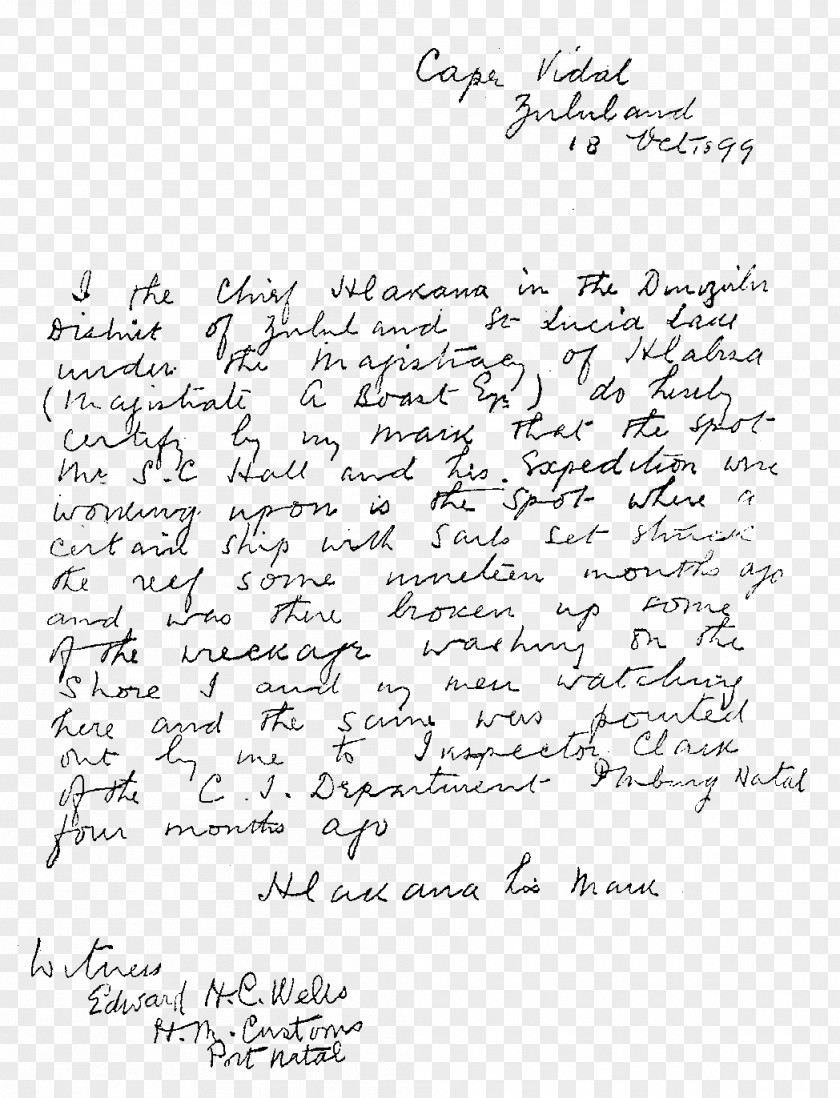 Cape Vidal
Zululand
18 Oct 1899
I the Chief Hlakana in the Dinizulu
District of Zululand St Lucia Lake
under the Magistracy of Hlabisa
(Magistrate A Boast Esq) do hereby
certify by my mark that the spot
Mr S.C Hall and his Expedition were
working upon is the spot where a
certain ship with sails set struck
the reef some nineteen months ago
and was there broken up some
of the wreckage washing on the
shore I and my men watching
here and the same was pointed
out by me to Inspector Clark
of the C. I. Department PMburg Natal
four months ago
Hlakana his mark
Witness
Edward H.C. Wells
H.M. Customs
Port Natal